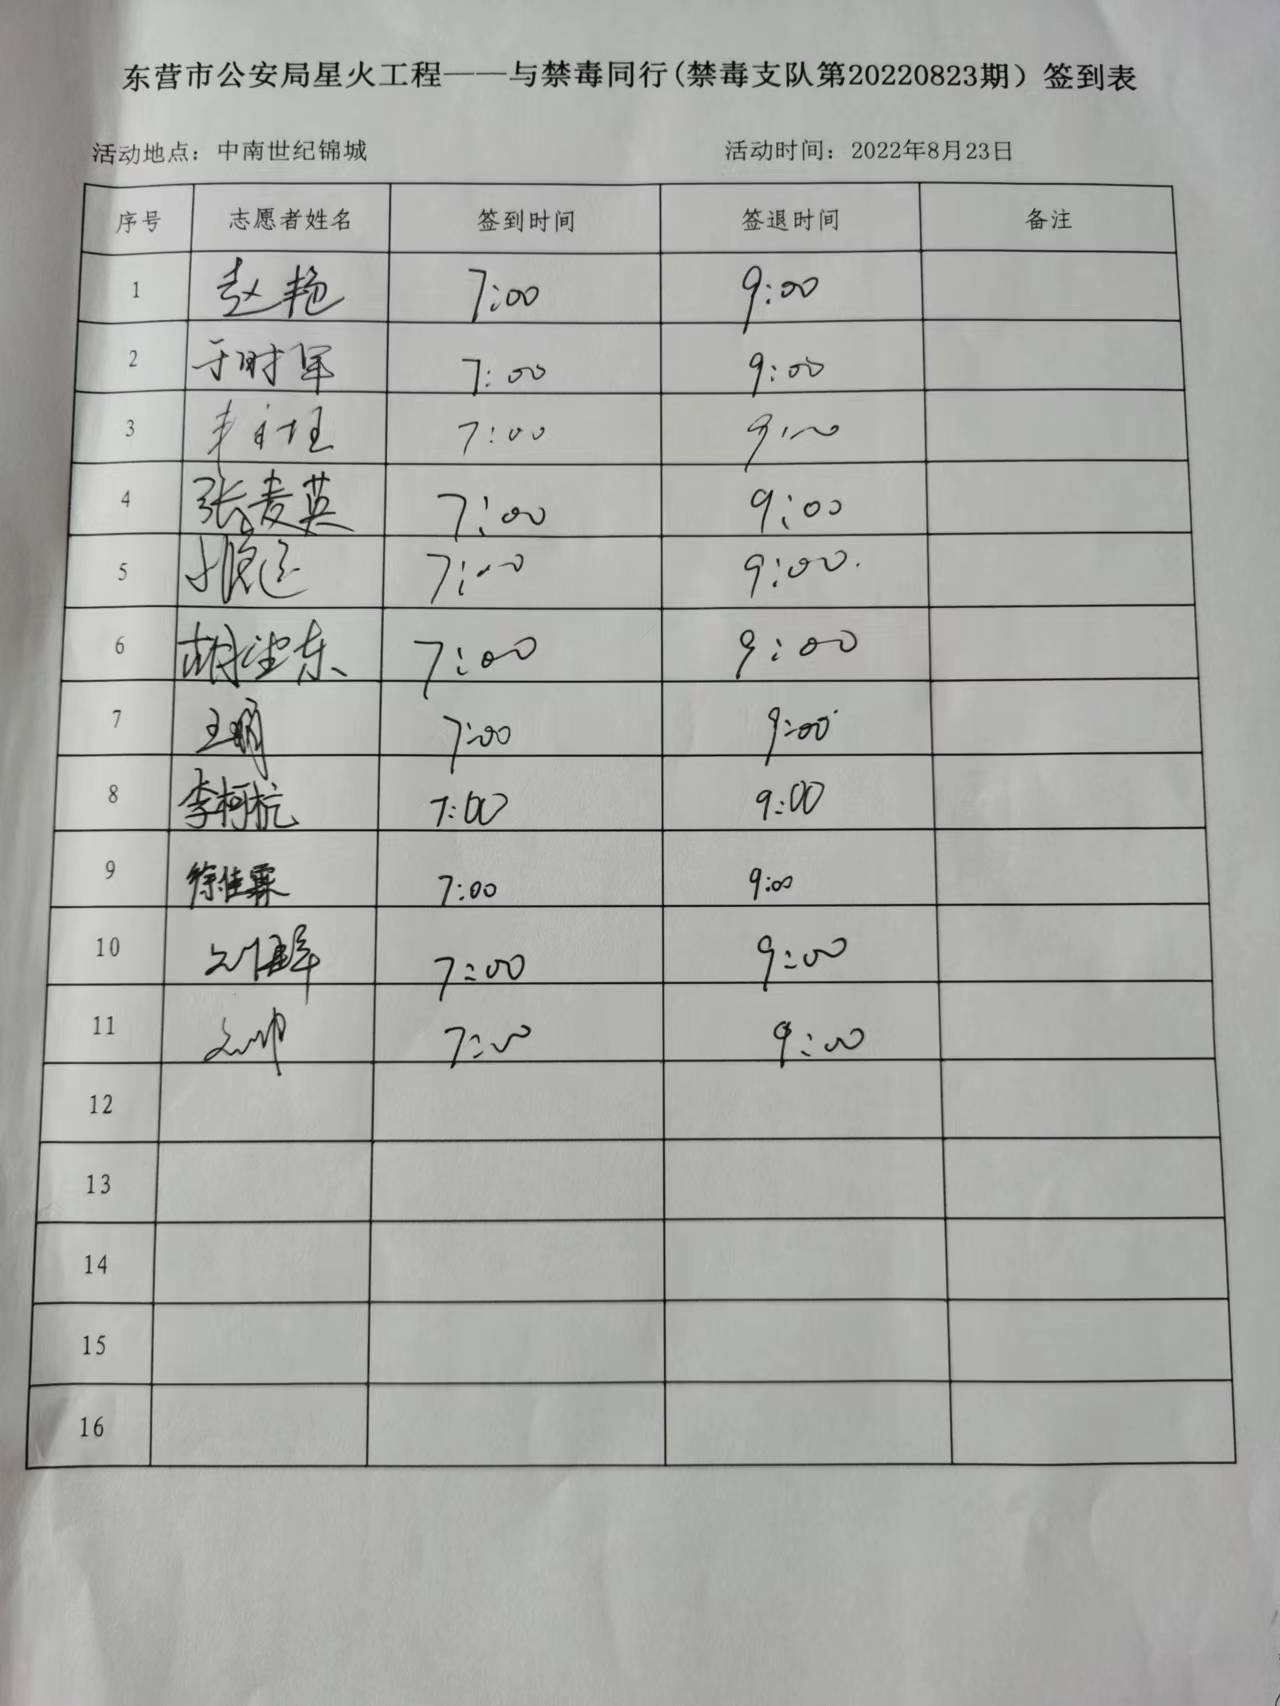 东营市公安局星火工程——与禁毒同行(禁毒支队第20220823期）签到表
活动地点：中南世纪锦城 活动时间：2022年8月23日
序号 志愿者姓名 签到时间 签退时间 备注
1 赵艳 7:00 9:00
2 于时军 7:00 9:00
3 7:00 9:00
4 张麦英 7:00 9:00
5 7:00 9:00.
6 胡尘东 7:00 9:00
7 王明 7:00 9:00
8 李柯杭 7:00 9:00
9 徐佳霖 7:00 9:00
10 7:00 9:00
11 刘帅 7:00 9:00
12
13
14
15
16